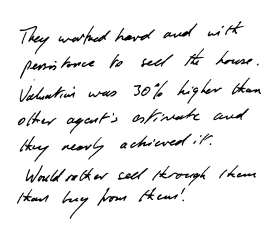 They worked hard and with
persistance to sell the house.
Valuation was 30% higher than
other agent's estimate and
they nearly achieved it.
Would rather sell through them
than buy from them!